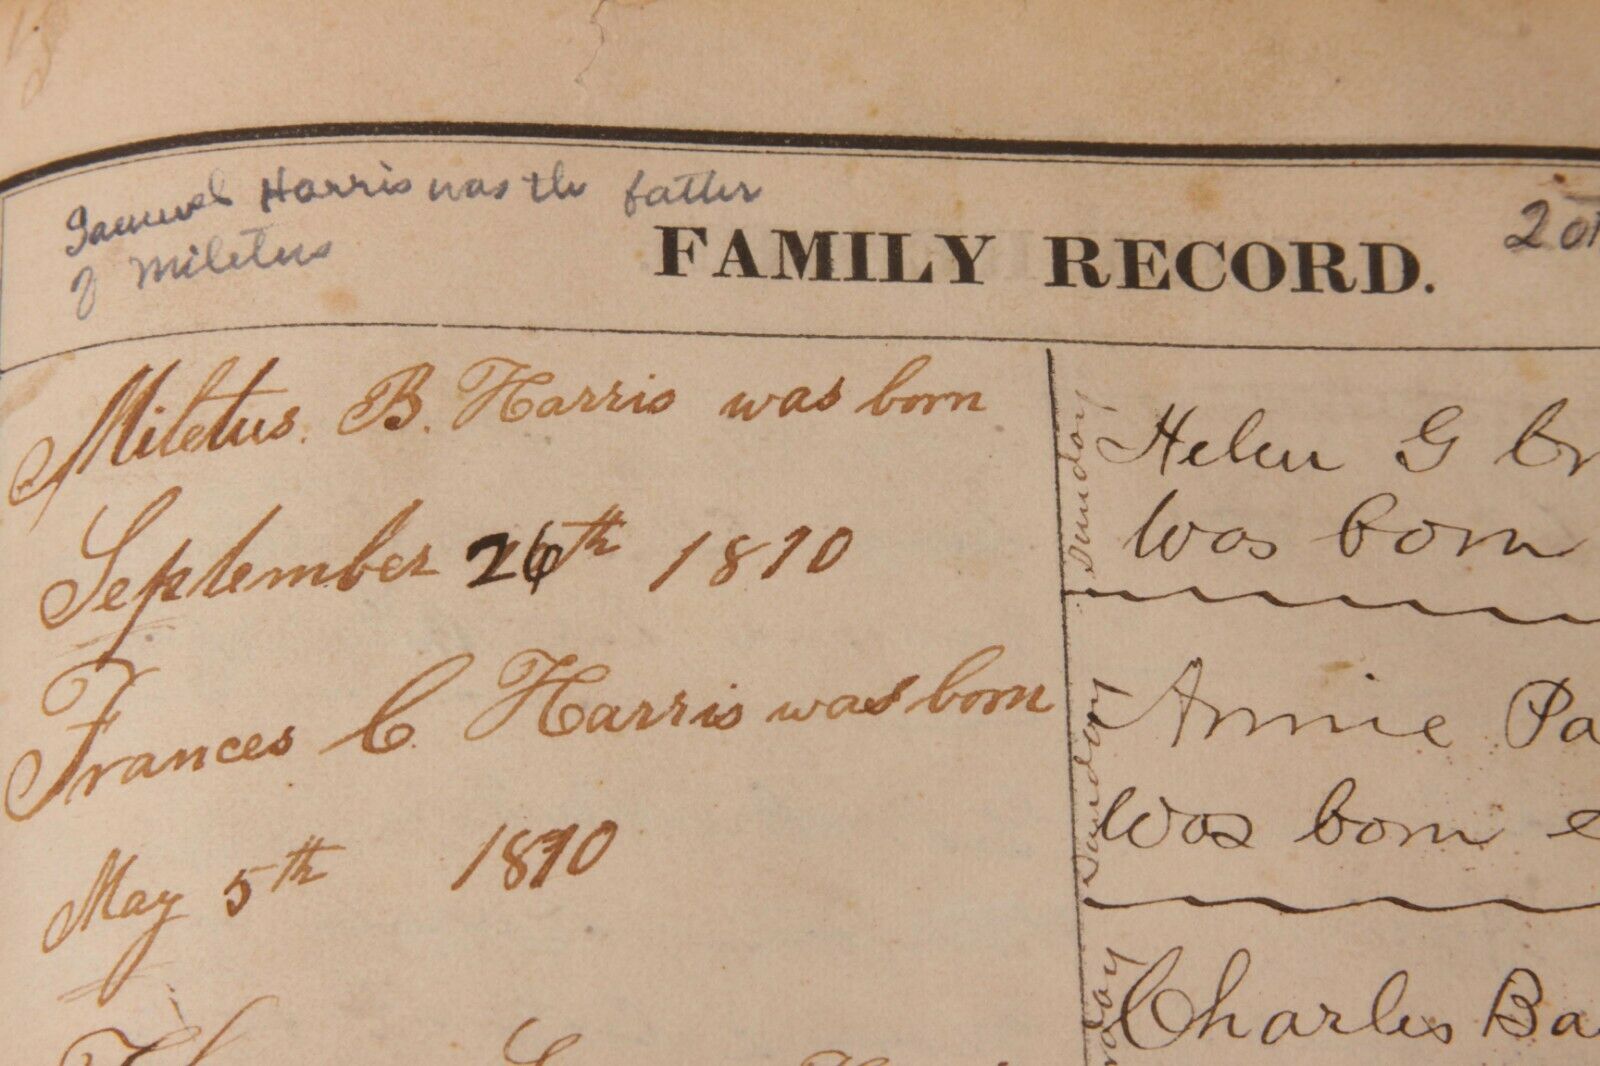 Samuel Harris was the father
of Miletus
FAMILY RECORD.
Miletus. B. Harris was born
September 26th 1810
Frances C. Harris was born
May 5th 1810
Sunday
Helen G
was born
Sunday
Annie Pa
was born
Charles Ba